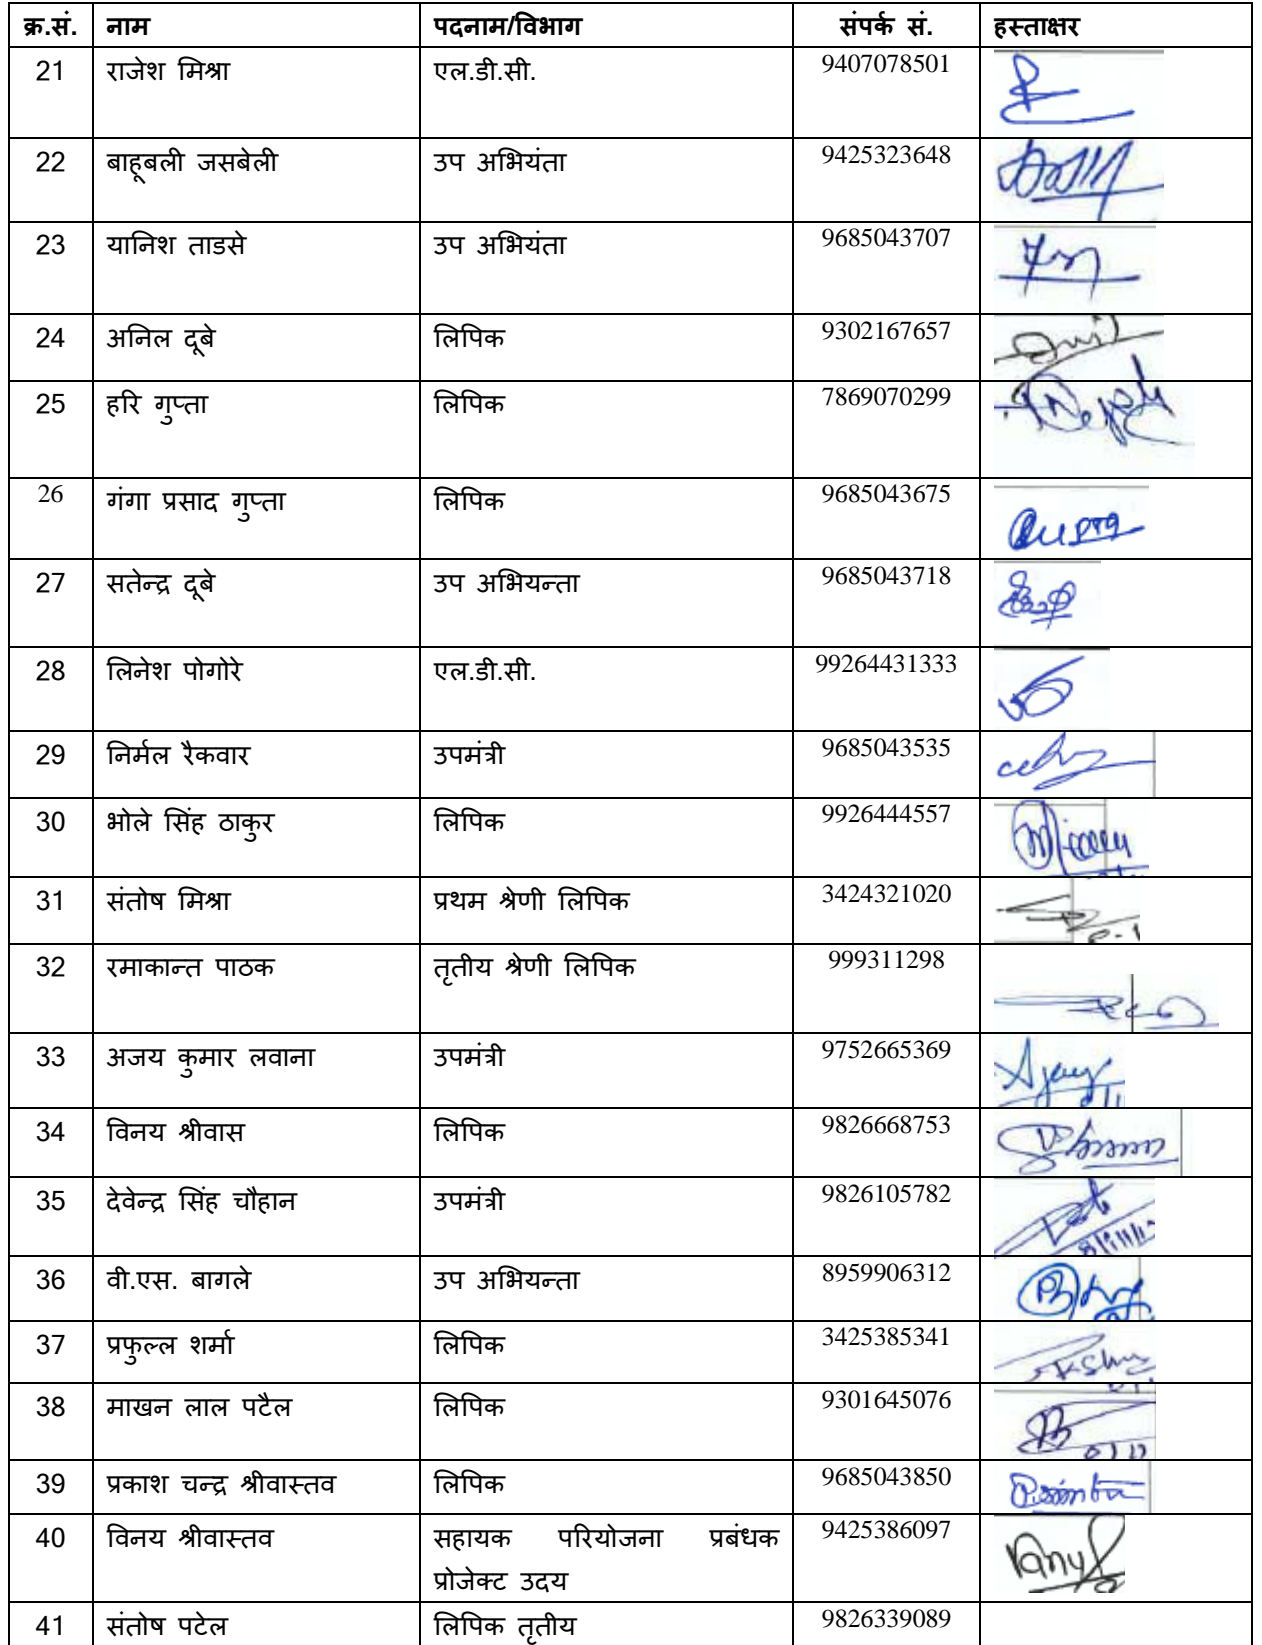 क्र.सं. नाम पदनाम/विभाग संपर्क सं. हस्ताक्षर
21 राजेश मिश्रा एल.डी.सी. 9407078501
22 बाहूबली जसबेली उप अभियंता 9425323648
23 यानिश ताडसे उप अभियंता 9685043707
24 अनिल दूबे लिपिक 9302167657
25 हरि गुप्ता लिपिक 7869070299
26 गंगा प्रसाद गुप्ता लिपिक 9685043675
27 सतेन्द्र दूबे उप अभियन्ता 9685043718
28 लिनेश पोगोरे एल.डी.सी. 99264431333
29 निर्मल रैकवार उपमंत्री 9685043535
30 भोले सिंह ठाकुर लिपिक 9926444557
31 संतोष मिश्रा प्रथम श्रेणी लिपिक 3424321020
32 रमाकान्त पाठक तृतीय श्रेणी लिपिक 999311298
33 अजय कुमार लवाना उपमंत्री 9752665369 Ajay
34 विनय श्रीवास लिपिक 9826668753
35 देवेन्द्र सिंह चौहान उपमंत्री 9826105782
36 वी.एस. बागले उप अभियन्ता 8959906312
37 प्रफुल्ल शर्मा लिपिक 3425385341
38 माखन लाल पटैल लिपिक 9301645076
39 प्रकाश चन्द्र श्रीवास्तव लिपिक 9685043850
40 विनय श्रीवास्तव सहायक परियोजना प्रबंधक 9425386097
प्रोजेक्ट उदय
41 संतोष पटेल लिपिक तृतीय 9826339089